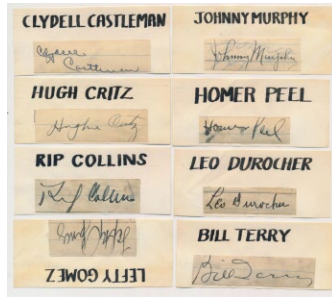 CLYDELL CASTLEMAN
Clydell
Castleman
HUGH CRITZ
Hughie Critz
RIP COLLINS
Rip Collins
Lefty Gomez
LEFTY GOMEZ
JOHNNY MURPHY
Johnny Murphy
HOMER PEEL
Homer Peel
LEO DUROCHER
Leo Durocher
BILL TERRY
Bill Terry